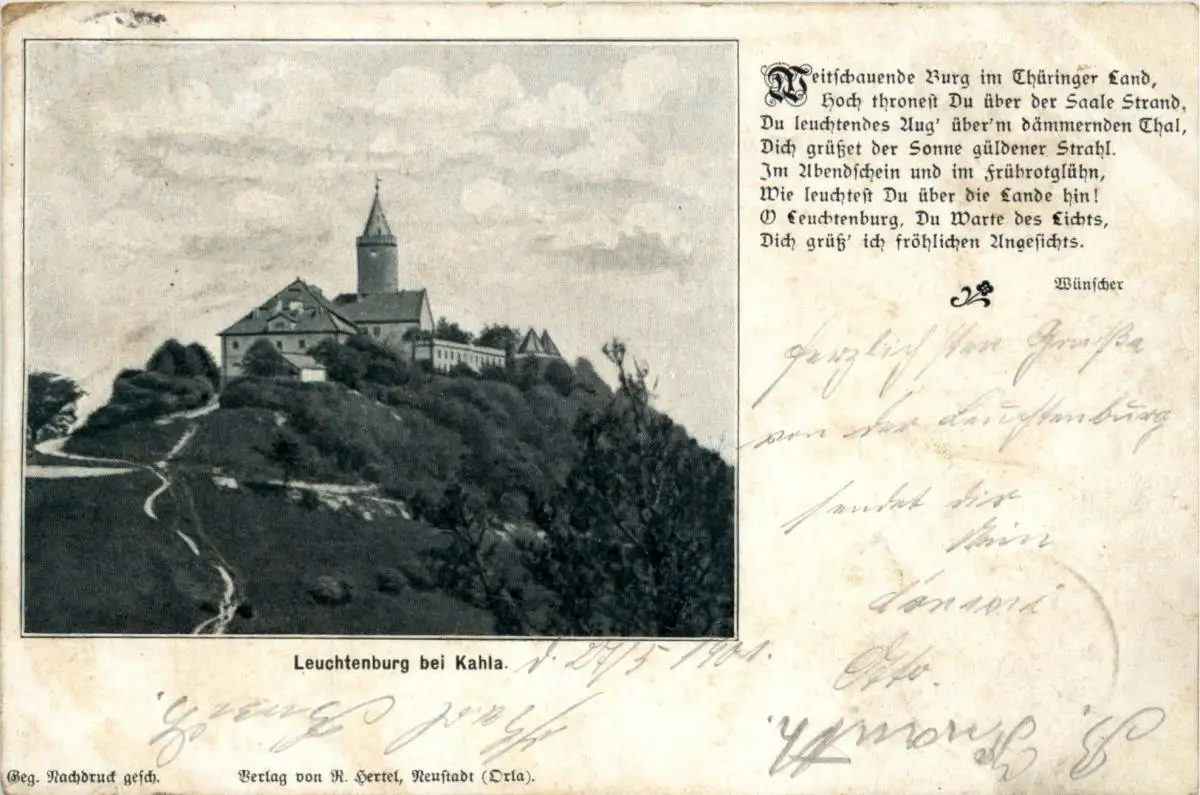 Weitschauende Burg im Thüringer Land,
Hoch thronest Du über der Saale Strand,
Du leuchtendes Aug' über'm dämmernden Thal,
Dich grüßet der Sonne güldener Strahl.
Im Abendschein und im Frührotglühn,
Wie leuchtest Du über die Lande hin!
O Leuchtenburg, Du Warte des Lichts,
Dich grüß' ich fröhlichen Angesichts.
Wünscher
Herzlichsten Grüße
von der Leuchtenburg
sendet dir
Dein
Otto.
Leuchtenburg bei Kahla.
d. 27/5 1901.
Geg. Nachdruck gesch.
Verlag von R. Hertel, Neustadt (Orla).